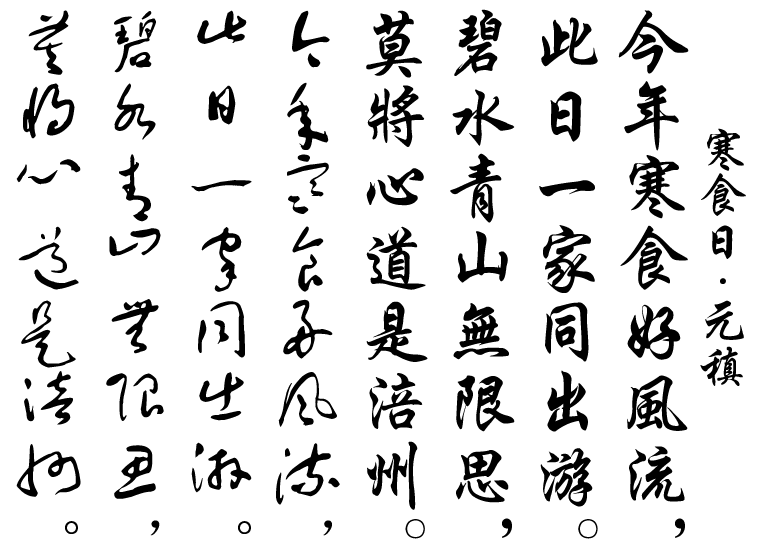 寒食日·元稹
今年寒食好風流，
此日一家同出游。
碧水青山無限思，
莫將心道是涪州。
今年寒食好風流，
此日一家同出游。
碧水青山無限思，
莫將心道是涪州。